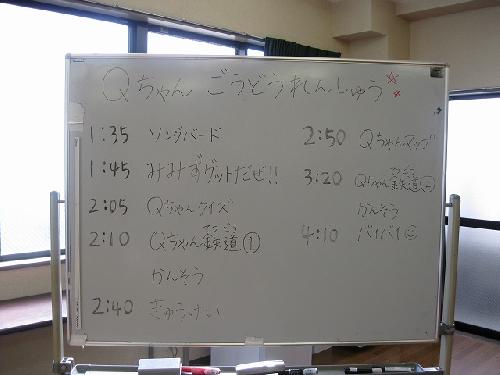 Qちゃん ごうどうれんしゅう
1:35 ソングバード
1:45 みみずゲットだぜ!!
2:05 Qちゃんクイズ
2:10 Qちゃん鉄道①
かんそう
2:40 きゅうけい
2:50 Qちゃんマップ
3:20 Qちゃん鉄道②
かんそう
4:10 バイバイ